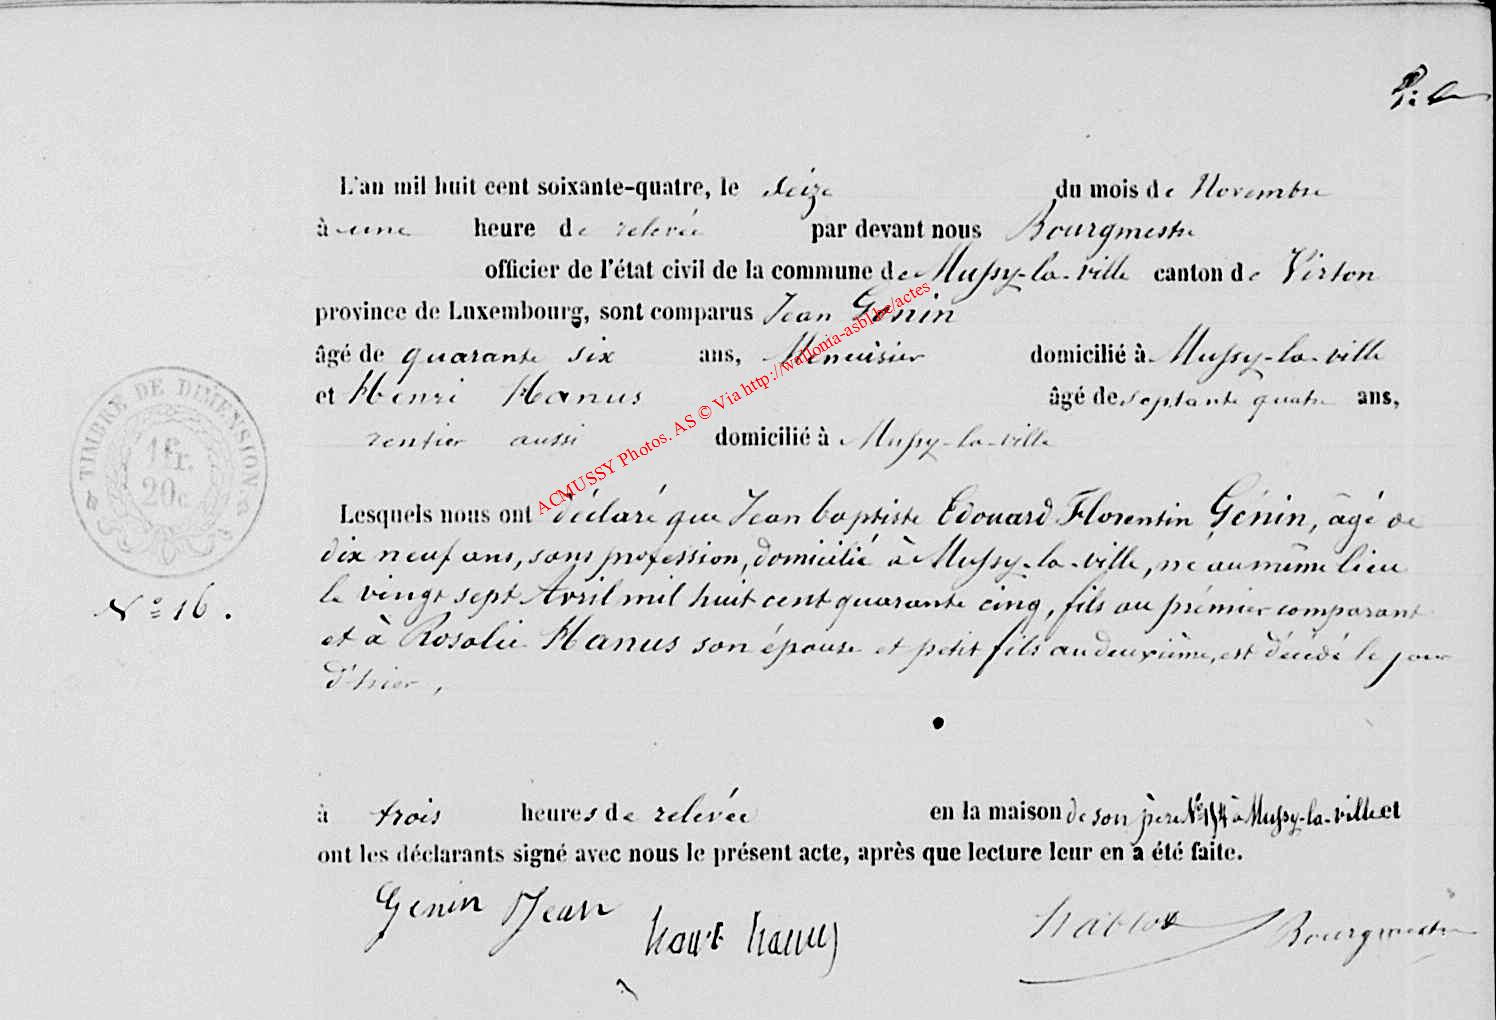 L'an mil huit cent soixante-quatre, le seize du mois de Novembre
à une heure de relevée par devant nous Bourgmestre
officier de l'état civil de la commune de Mussy-la-ville canton de Virton
province de Luxembourg, sont comparus Jean Génin
âgé de quarante six ans, Menuisier domicilié à Mussy-la-ville
et Henri Hanus âgé de septante quatre ans,
rentier aussi domicilié à Mussy-la-ville
ACMUSSY Photos. AS © Via http://wallonia-asbl.be/actes
TIMBRE DE DIMENSION
1 fr.
20 c
Lesquels nous ont déclaré que Jean baptiste Edouard Florentin Génin, âgé de
dix neuf ans, sans profession, domicilié à Mussy-la-ville, né au même lieu
N° 16.
le vingt sept Avril mil huit cent quarante cinq, fils au prémier comparant
et à Rosalie Hanus son épouse et petit fils au deuxième, est décédé le jour
d'hier,
à trois heures de relevée en la maison de son père N° à Mussy-la-ville et
ont les déclarants signé avec nous le présent acte, après que lecture leur en a été faite.
Génin Jean
hanus
Bourgmestre